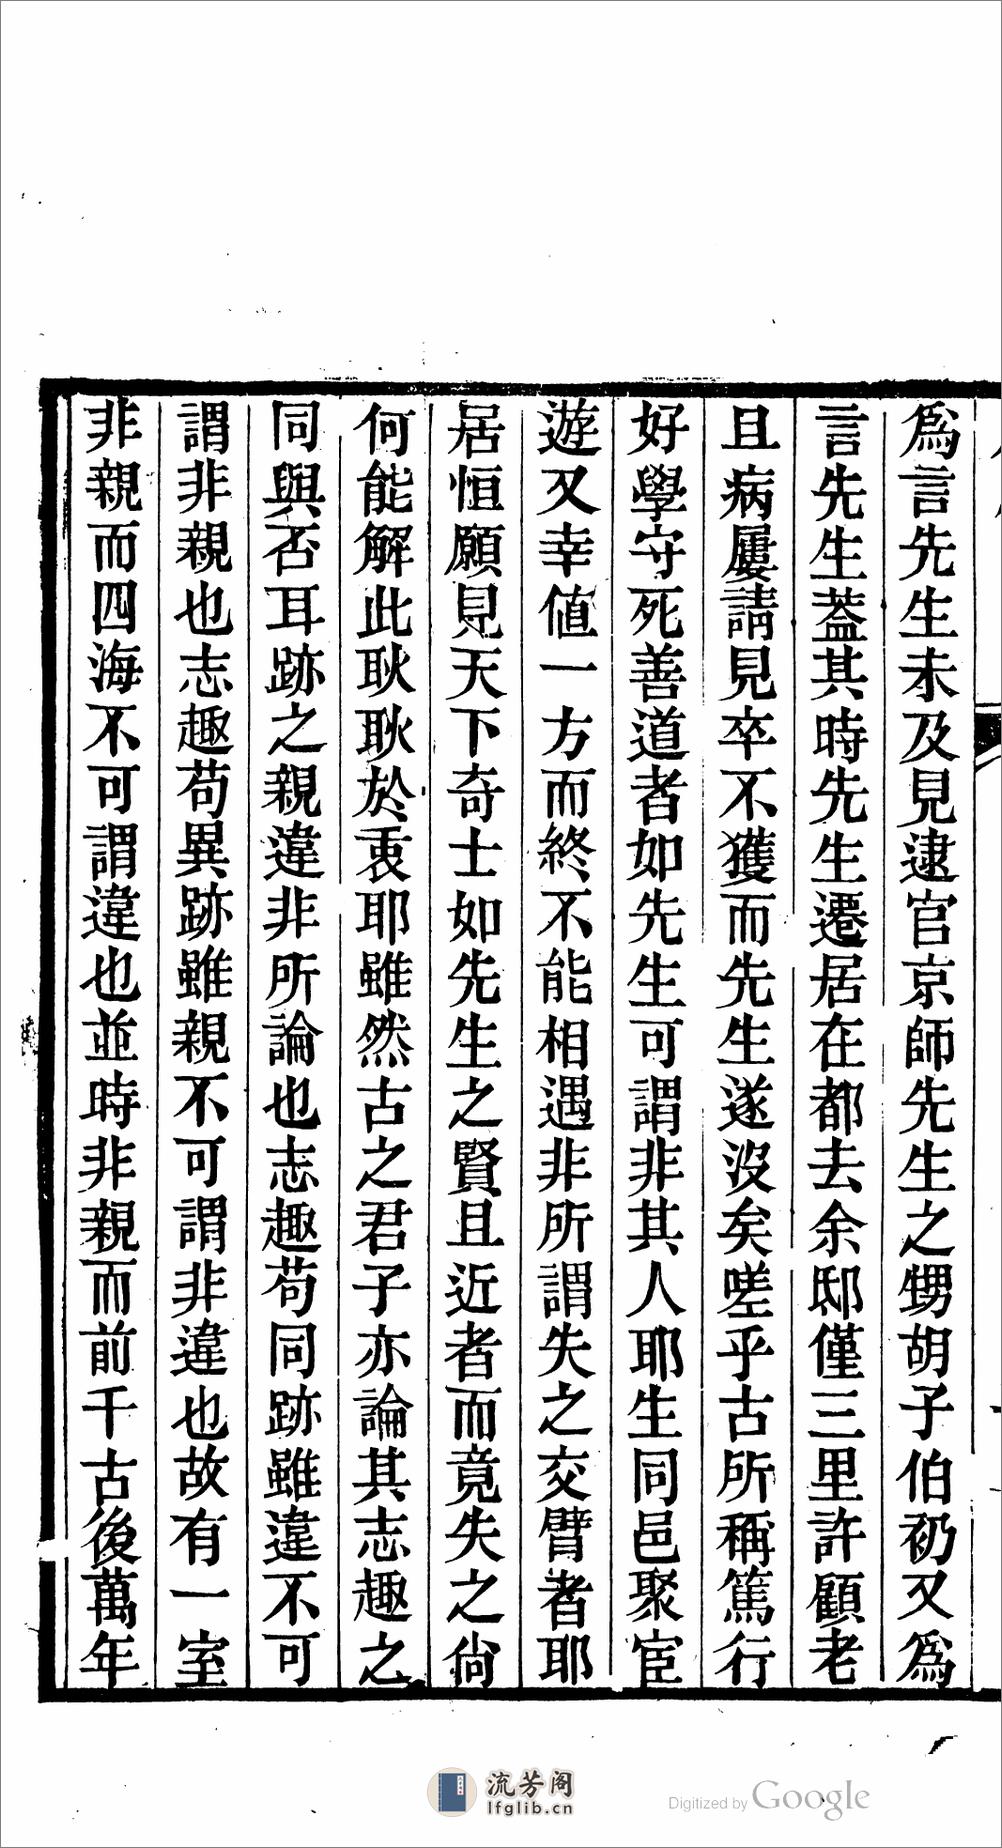 爲言先生未及見逮官京師先生之甥胡子伯礽又爲
言先生蓋其時先生遷居在都去余邸僅三里許顧老
且病屢請見卒不獲而先生遂沒矣嗟乎古所稱篤行
好學守死善道者如先生可謂非其人耶生同邑聚宦
遊又幸値一方而終不能相遇非所謂失之交臂者耶
居恒願見天下奇士如先生之賢且近者而竟失之尙
何能解此耿耿於衷耶雖然古之君子亦論其志趣之
同與否耳跡之親違非所論也志趣苟同跡雖違不可
謂非親也志趣苟異跡雖親不可謂非違也故有一室
非親而四海不可謂違也並時非親而前千古後萬年
流芳阁
lfglib.cn
Digitized by Google